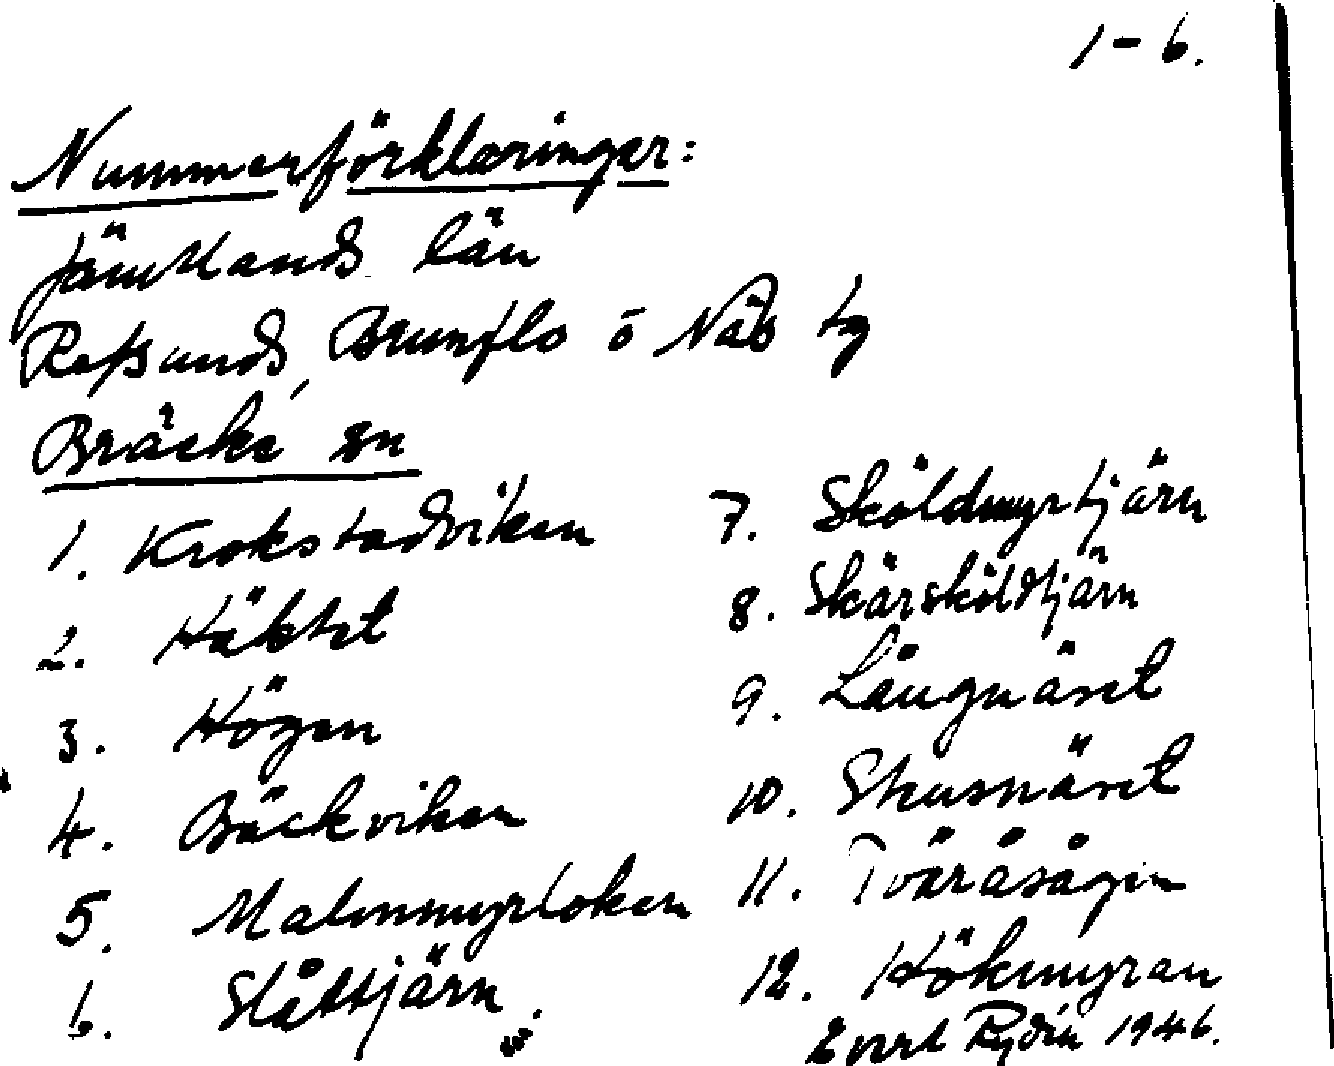 1-6.
Nummerförklaringar:
Jämtlands län
Refsunds, Brunflo o Näs tg
Bräcke sn
1. Krokstadviken
2. Häktet
3. Högen
4. Bäckviken
5. Malmmyrloken
6. Slåttjärn
7. Sköldmyrtjärn
8. Skärsköldtjärn
9. Långnäset
10. Skusnäset
11. Tväråsågen
12. Hökmyran
Evert Rydin 1946.